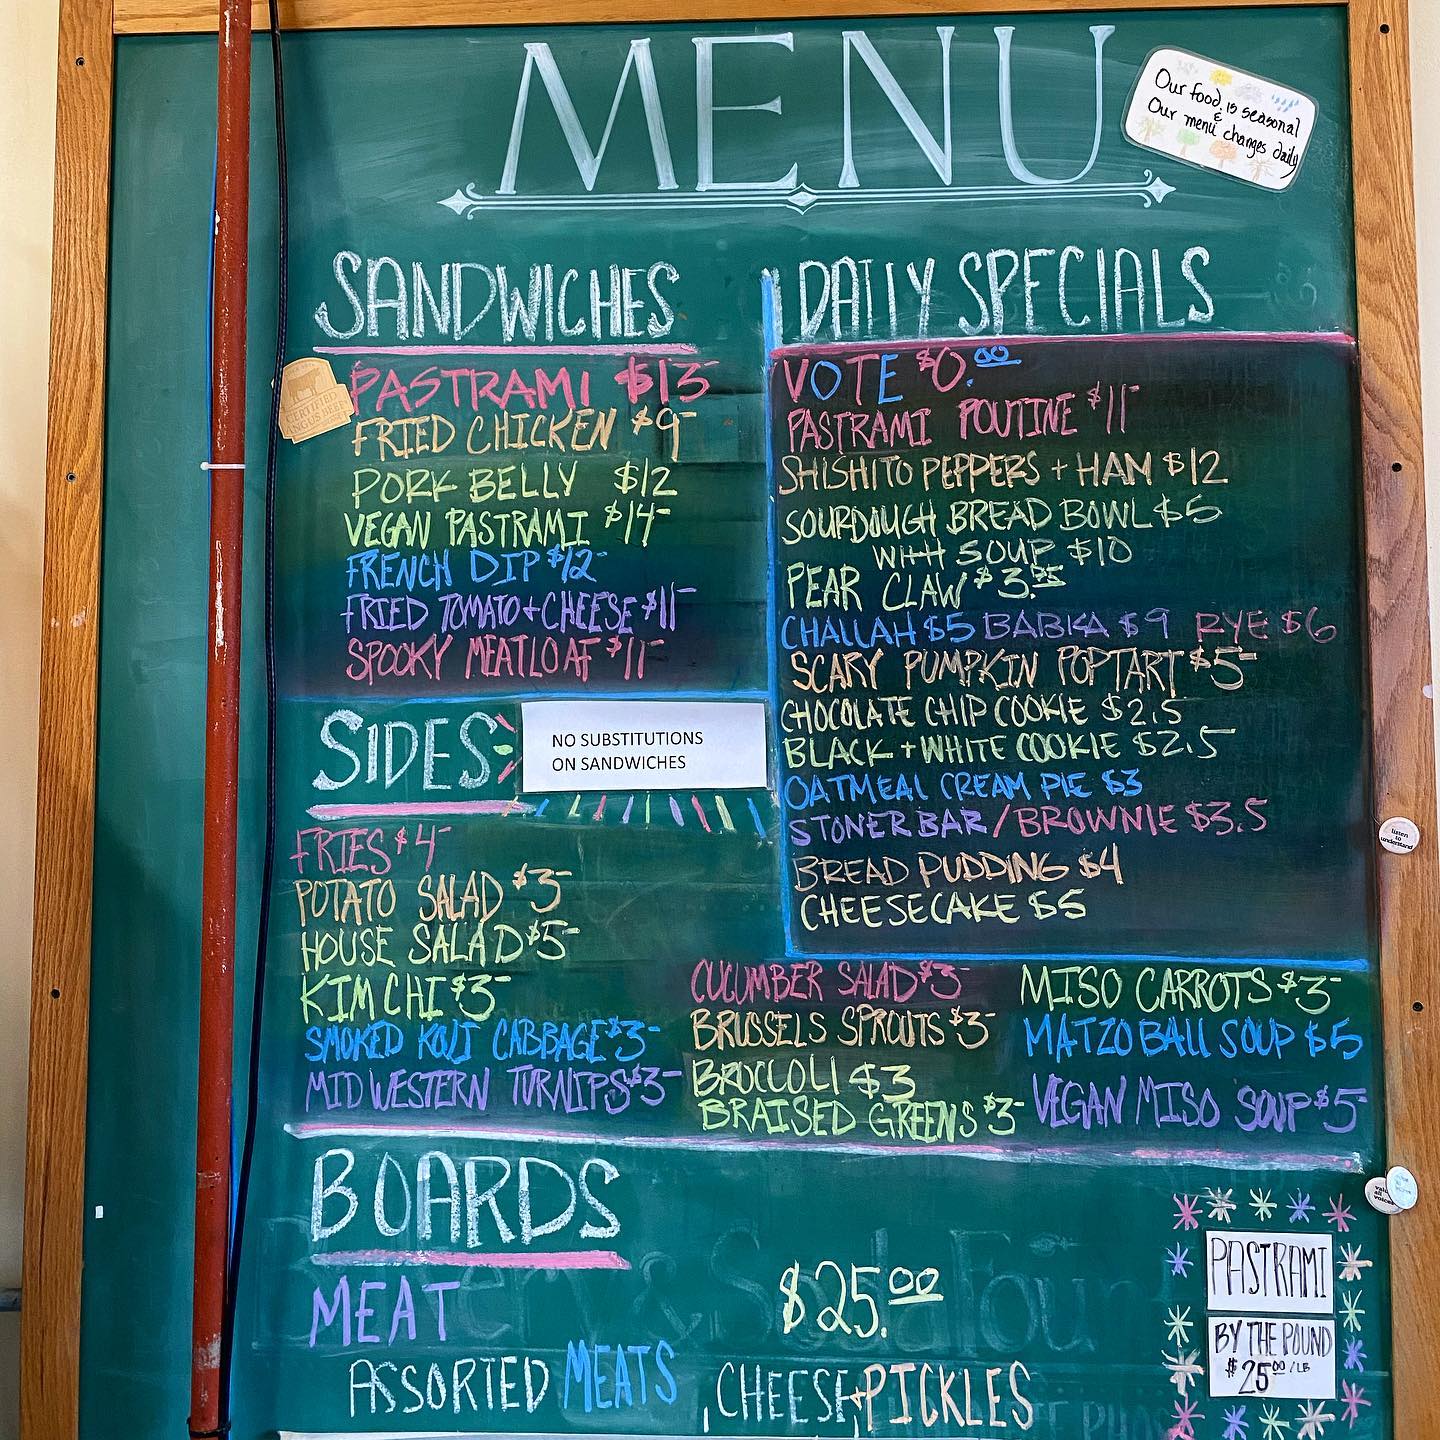 MENU
Our food is seasonal
&
Our menu changes daily
SANDWICHES
PASTRAMI $13-
FRIED CHICKEN $9-
PORK BELLY $12
VEGAN PASTRAMI $14-
FRENCH DIP $12-
FRIED TOMATO + CHEESE $11-
SPOOKY MEATLOAF $11-
DAILY SPECIALS
VOTE $0.00
PASTRAMI POUTINE $11-
SHISHITO PEPPERS + HAM $12
SOURDOUGH BREAD BOWL $5
WITH SOUP $10
PEAR CLAW $3.25
CHALLAH $5 BABKA $9 RYE $6
SCARY PUMPKIN POPTART $5-
CHOCOLATE CHIP COOKIE $2.5
BLACK + WHITE COOKIE $2.5
OATMEAL CREAM PIE $3
STONER BAR / BROWNIE $3.5
BREAD PUDDING $4
CHEESECAKE $5
SIDES:
NO SUBSTITUTIONS
ON SANDWICHES
FRIES $4-
POTATO SALAD $3-
HOUSE SALAD $5-
KIMCHI $3-
SMOKED KOJI CABBAGE $3-
MIDWESTERN TURNIPS $3-
CUCUMBER SALAD $3-
BRUSSELS SPROUTS $3-
BROCCOLI $3
BRAISED GREENS $3-
MISO CARROTS $3-
MATZO BALL SOUP $5
VEGAN MISO SOUP $5-
listen
to
understand
BOARDS
MEAT $25.00
ASSORTED MEATS, CHEESE + PICKLES
PASTRAMI
BY THE POUND
$25.00/LB